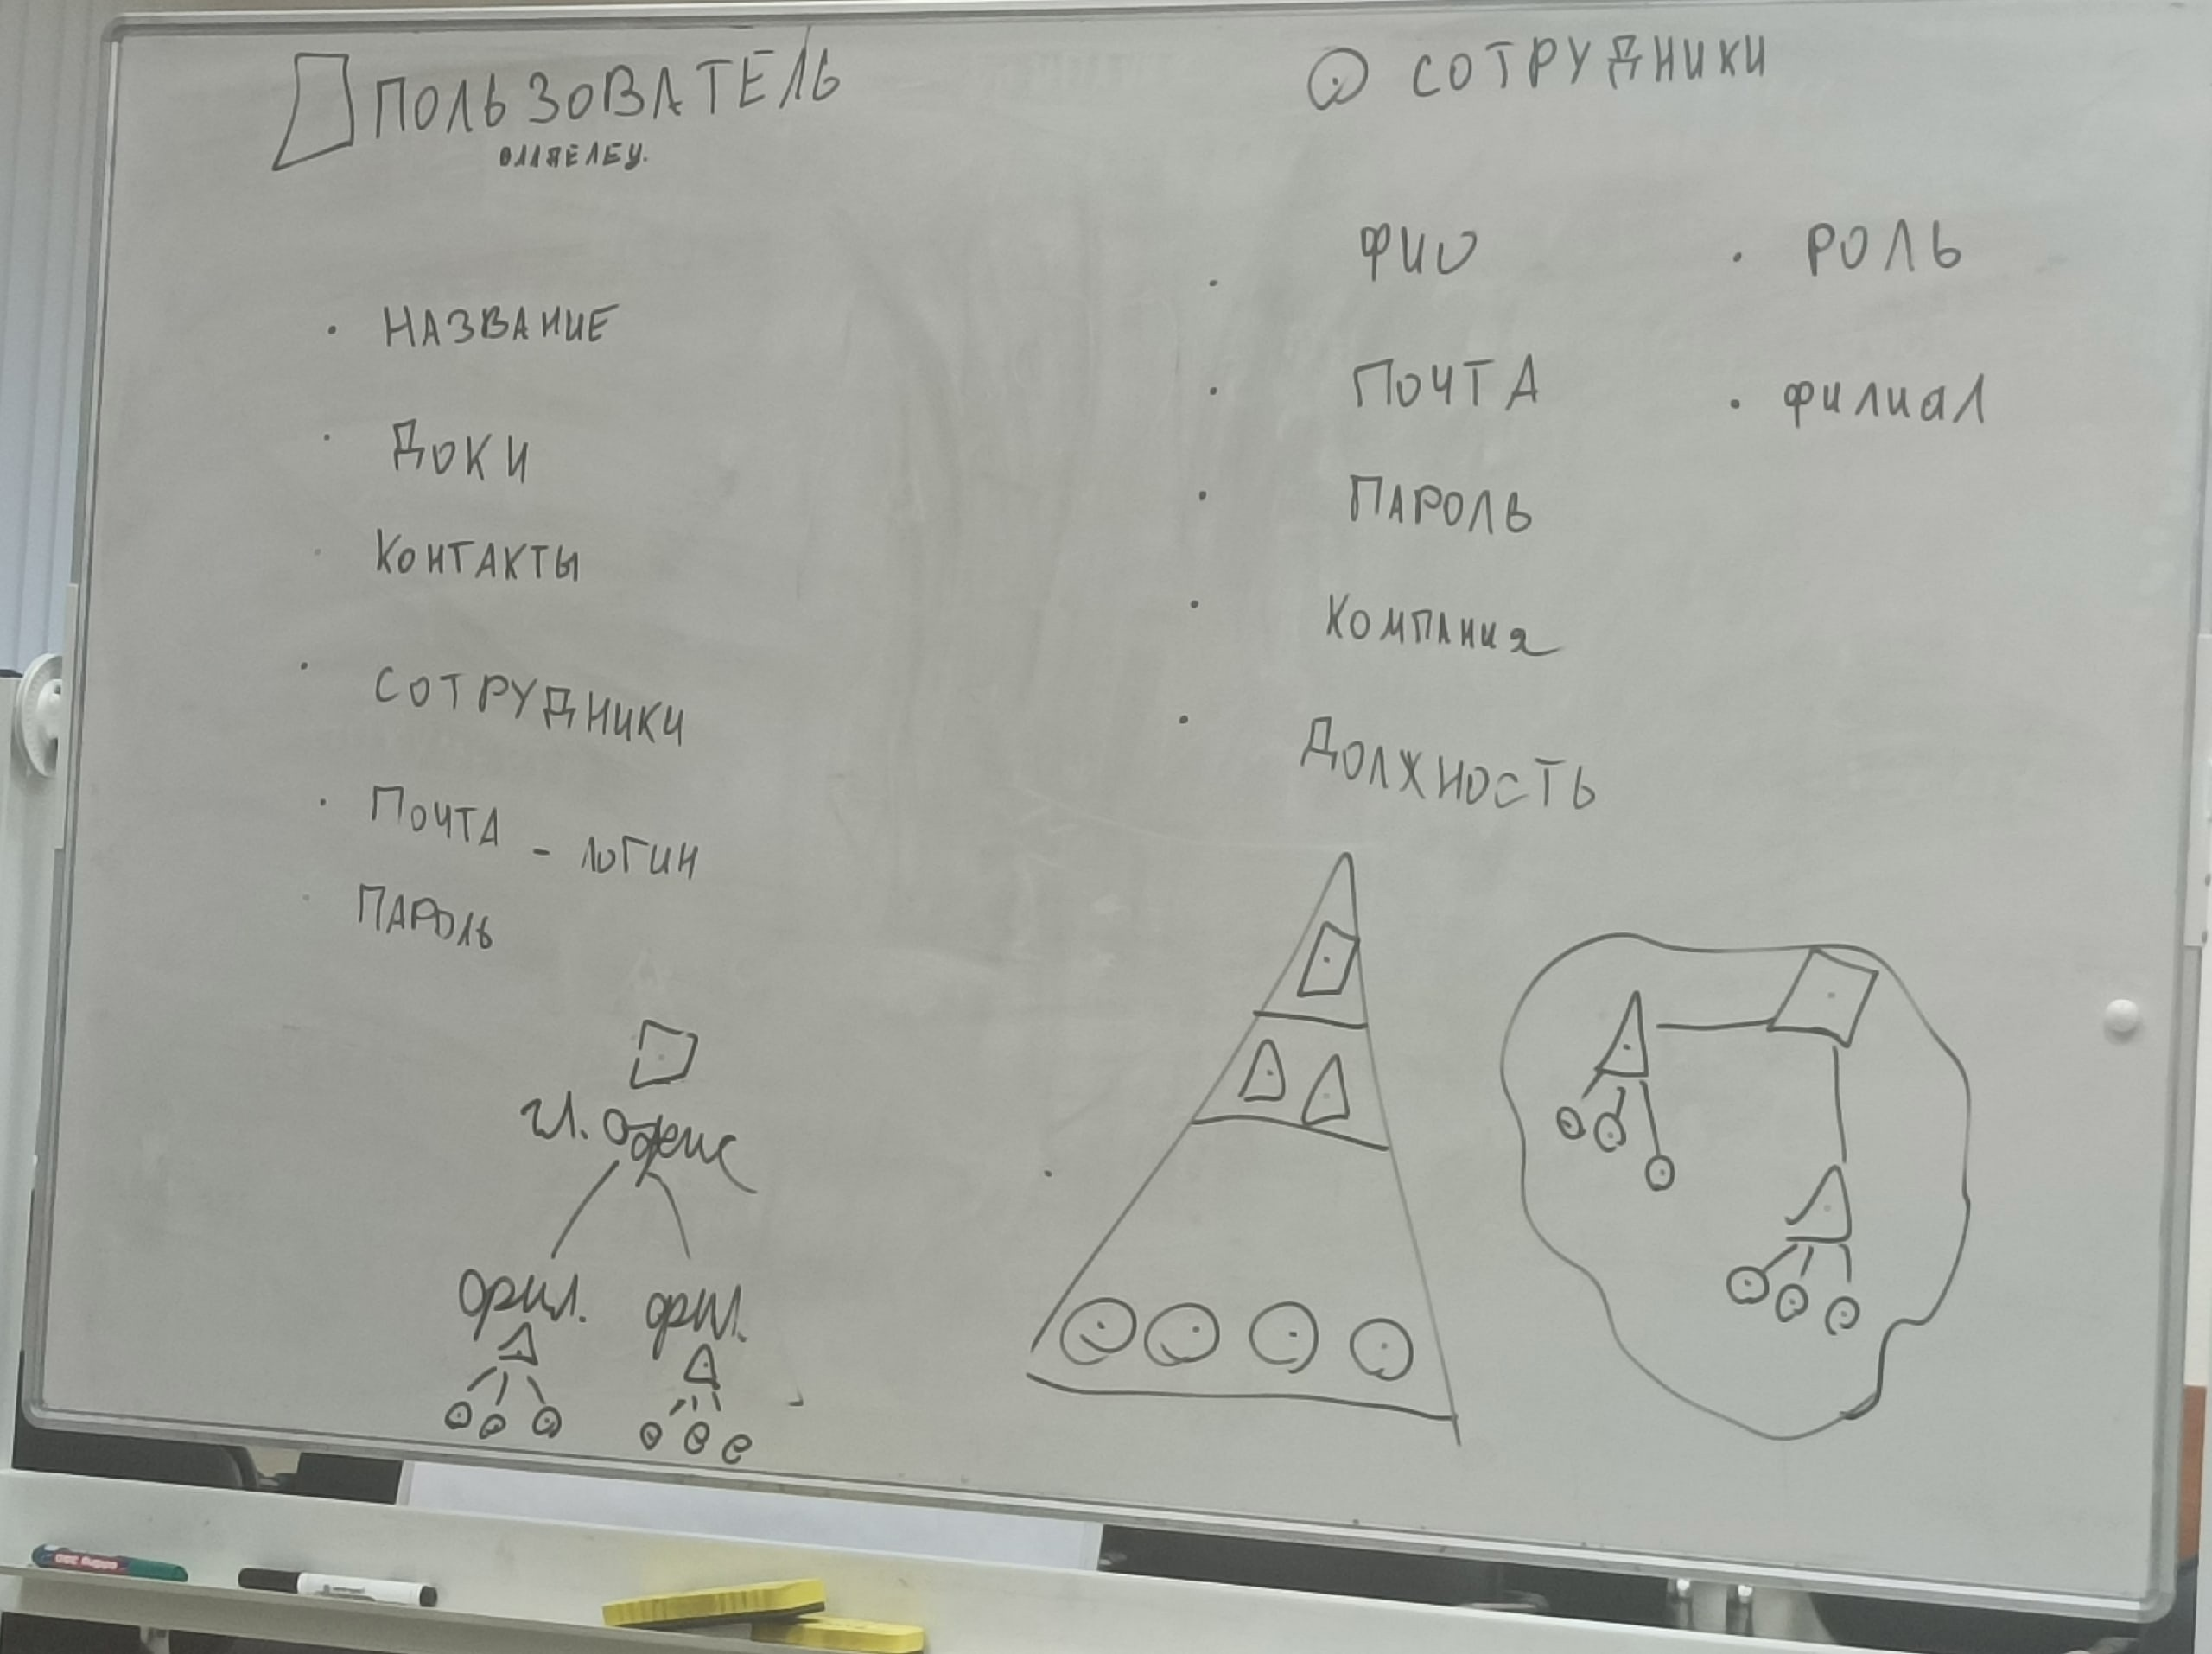 ПОЛЬЗОВАТЕЛЬ
• НАЗВАНИЕ
• ДОКИ
• КОНТАКТЫ
• СОТРУДНИКИ
• ПОЧТА - ЛОГИН
• ПАРОЛЬ
гл. офис
фил. фил.
СОТРУДНИКИ
• ФИО
• ПОЧТА
• ПАРОЛЬ
• КОМПАНИЯ
• ДОЛЖНОСТЬ
• РОЛЬ
• филиал